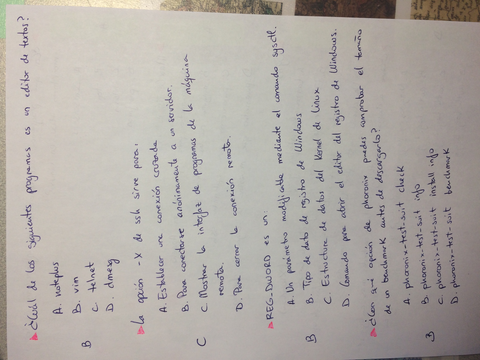 ¿Cuál de los siguientes programas es un editor de textos?
A. noteplus
B. vim
C. telnet
D. dmesg
B
La opción -X de ssh sirve para:
A. Establecer una conexión cifrada
B. Para conectarse anónimamente a un servidor.
C. Mostrar la interfaz de programas de la máquina
remota.
D. Para cerrar la conexión remota.
C
REG-DWORD es un:
A. Un parámetro modificable mediante el comando sysctl.
B. Tipo de dato de registro de Windows
C. Estructura de datos del Kernel de Linux
D. Comando para abrir el editor del registro de Windows.
B
¿Con q-é opción de phoronix puedes comprobar el tamaño
de un benchmark antes de descargarlo?
A. phoronix-test-suit check
B. phoronix-test-suit info
C. phoronix-test-suit install info
D. phoronix-test-suit benchmark
B